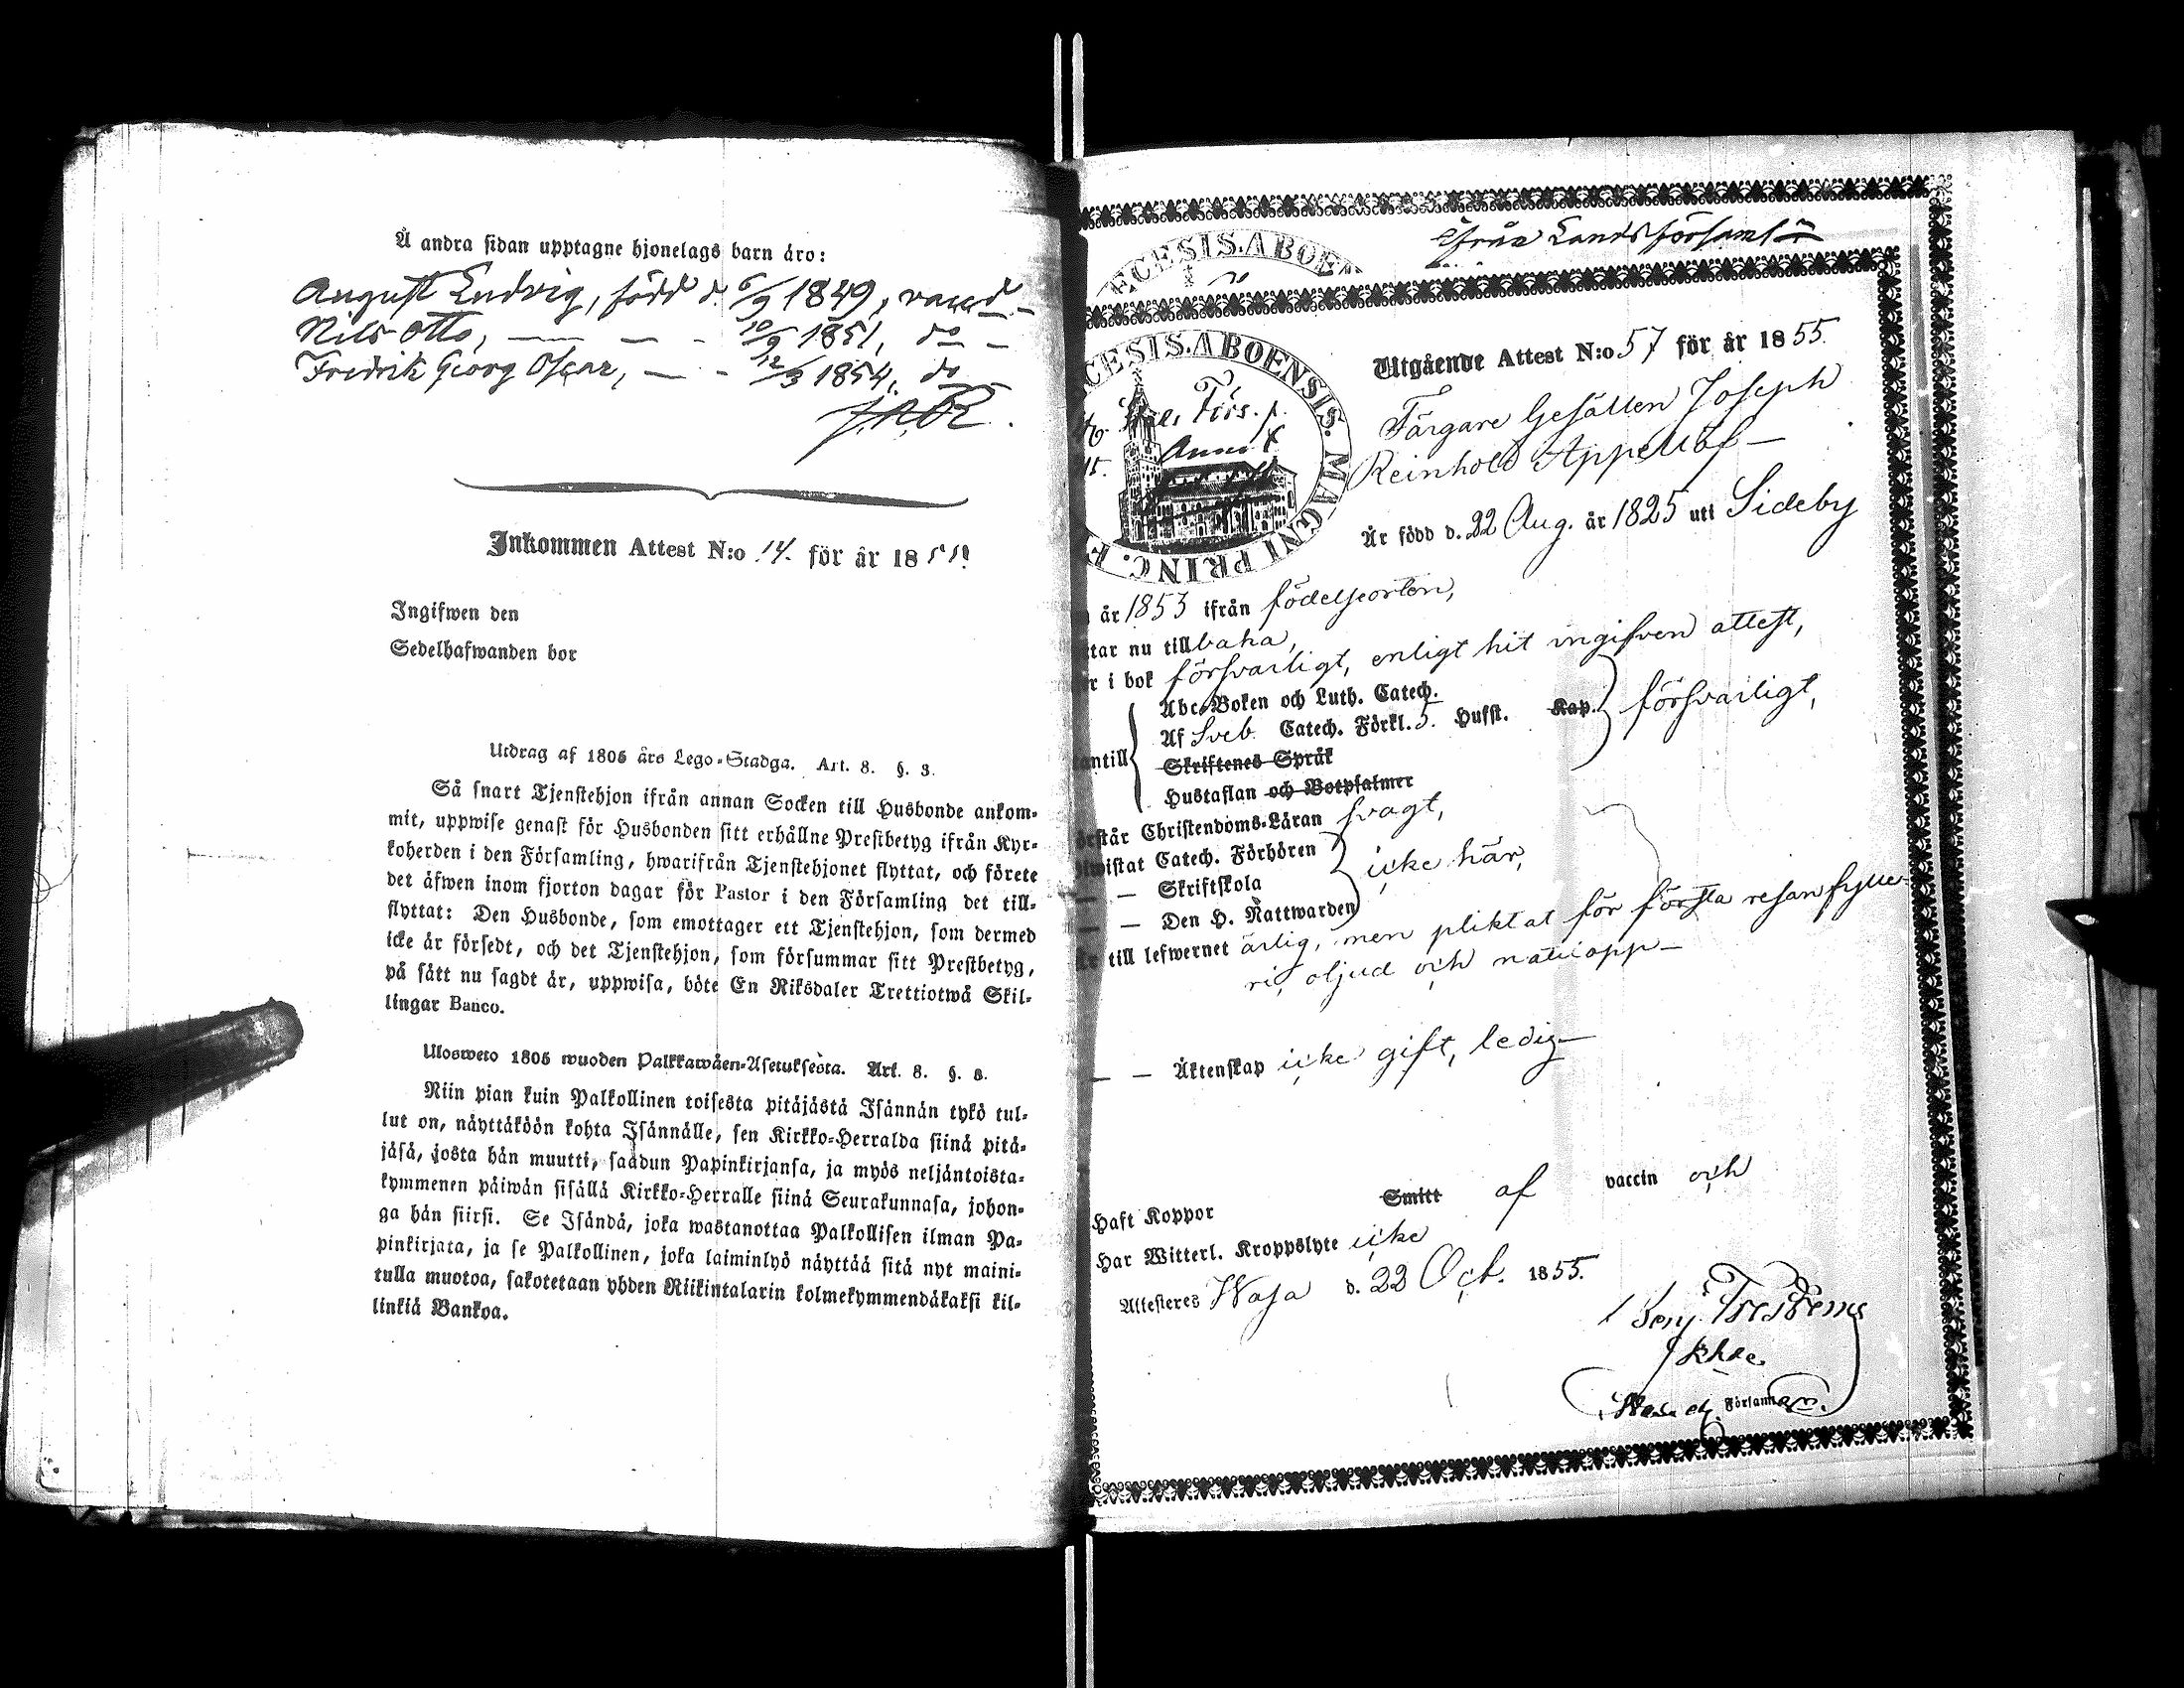 Å andra sidan upptagne hjonelags barn äro:
August Ludvig, född d. 6/9 1849, vacc.
Nils Otto, — — - 10/9 1851, do —
Fredrik Georg Oscar, — - 12/3 1854, do
Inkommen Attest N:o 14. för år 1855
Ingifwen den
Sedelhafwanden bor
Utdrag af 1805 års Lego-Stadga. Art. 8. §. 3.
Så snart Tjenstehjon ifrån annan Socken till Husbonde ankom-
mit, uppwise genast för Husbonden sitt erhållne Prestbetyg ifrån Kyr-
koherden i den Församling, hwarifrån Tjenstehjonet flyttat, och förete
det äfwen inom fjorton dagar för Pastor i den Församling det till-
flyttat: Den Husbonde, som emottager ett Tjenstehjon, som dermed
icke är försedt, och det Tjenstehjon, som försummar sitt Prestbetyg,
på sätt nu sagdt är, uppwisa, böte En Riksdaler Trettiotwå Skil-
lingar Banco.
Ulosweto 1805 wuoden Palkkawäen-Asetuksesta. Art. 8. §. 3.
Niin pian kuin Palkollinen toisesta pitäjästä Isännän tykö tul-
lut on, näyttäköön kohta Isännälle, sen Kirkko-Herralda siinä pitä-
jäsä, josta hän muutti, saadun Papinkirjansa, ja myös neljäntoista-
kymmenen päiwän sisällä Kirkko-Herralle siinä Seurakunnasa, johon-
ga hän siirsi. Se Isändä, joka wastanottaa Palkollisen ilman Pa-
pinkirjata, ja se Palkollinen, joka laiminlyö näyttää sitä nyt maini-
tulla muotoa, sakotetaan yhden Riikintalarin kolmekymmendäkaksi kil-
linkiä Bankoa.
ifrån Landsförsaml
ECESIS. ABOEN
CESIS. ABOENSIS. MAGNI PRINC. F
Utgående Attest N:o 57 för år 1855.
Färgare Gesällen Joseph
Reinhold Appellöf —
Är född d. 22 Aug. år 1825 uti Sideby
år 1853 ifrån födelseorten,
tar nu tillbaka,
r i bok försvarligt, enligt hit ingifven attest,
Abc-Boken och Luth. Catech.
Af Sveb. Catech. Förkl. 5. Hufst. Kap. försvarligt,
antill
Skriftenes Språk
Hustaflan och Botpsalmer
örstår Christendoms-Läran svagt,
wistat Catech. Förhören
— — Skriftskola icke här,
— — Den H. Nattwarden
Är till lefwernet ärlig, men pliktat för första resan fylle-
ri, oljud och
— — Äktenskap icke gift, ledig —
Haft Koppor Smitt af vaccin och
Har Witterl. Kroppslyte icke
Attesteres Wasa d. 22 Oct. 1855.